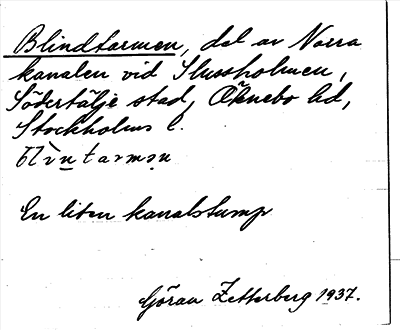 Blindtarmen, del av Norra
kanalen vid Slussholmen,
Södertälje stad, Öknebo hd,
Stockholms l.
blìntarmən
En liten kanalstump
Göran Zetterberg 1937.